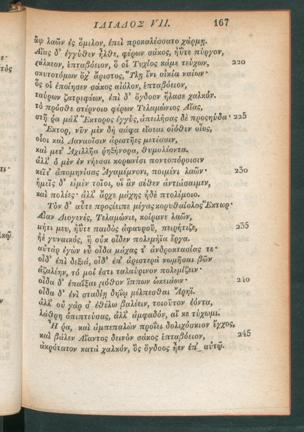 ΙΛΙΑΔΟΣ VII. 167
ἂψ λαῶν ἐς ὅμιλον, ἐπεὶ προκαλέσσατο χάρμῃ.
Αἴας δ' ἐγγύθεν ἦλθε, φέρων σάκος, ἠΰτε πύργον,
χάλκεον, ἑπταβόειον, ὅ οἱ Τυχίος κάμε τεύχων, 220
σκυτοτόμων ὄχ' ἄριστος, Ὕλῃ ἔνι οἰκία ναίων·
ὅς οἱ ἐποίησεν σάκος αἰόλον, ἑπταβόειον,
ταύρων ζατρεφέων, ἐπὶ δ' ὄγδοον ἤλασε χαλκόν.
τὸ πρόσθε στέρνοιο φέρων Τελαμώνιος Αἴας,
στῆ ῥα μάλ' Ἕκτορος ἐγγὺς, ἀπειλήσας δὲ προσηύδα· 225
Ἕκτορ, νῦν μὲν δὴ σάφα εἴσεαι οἰόθεν οἶος,
οἷοι καὶ Δαναοῖσιν ἀριστῆες μετέασιν,
καὶ μετ' Ἀχιλλῆα ῥηξήνορα, θυμολέοντα.
ἀλλ' ὁ μὲν ἐν νήεσσι κορωνίσι ποντοπόροισιν
κεῖτ' ἀπομηνίσας Ἀγαμέμνονι, ποιμένι λαῶν· 230
ἡμεῖς δ' εἰμὲν τοῖοι, οἳ ἂν σέθεν ἀντιάσαιμεν,
καὶ πολέες· ἀλλ' ἄρχε μάχης ἠδὲ πτολέμοιο.
Τὸν δ' αὖτε προσέειπε μέγας κορυθαίολος Ἕκτωρ·
Αἶαν Διογενὲς, Τελαμώνιε, κοίρανε λαῶν,
μήτι μευ, ἠΰτε παιδὸς ἀφαυροῦ, πειρήτιζε, 235
ἠὲ γυναικὸς, ἣ οὐκ οἶδεν πολεμήϊα ἔργα.
αὐτὰρ ἐγὼν εὖ οἶδα μάχας τ' ἀνδροκτασίας τε·
οἶδ' ἐπὶ δεξιὰ, οἶδ' ἐπ' ἀριστερὰ νωμῆσαι βῶν
ἀζαλέην, τό μοι ἔστι ταλαύρινον πολεμίζειν·
οἶδα δ' ἐπαΐξαι μόθον ἵππων ὠκειάων· 240
οἶδα δ' ἐνὶ σταδίῃ δηΐῳ μέλπεσθαι Ἄρηϊ.
ἀλλ' οὐ γάρ σ' ἐθέλω βαλέειν, τοιοῦτον ἐόντα,
λάθρῃ ὀπιπτεύσας, ἀλλ' ἀμφαδὸν, αἴ κε τύχωμι.
Ἦ ῥα, καὶ ἀμπεπαλὼν προΐει δολιχόσκιον ἔγχος,
καὶ βάλεν Αἴαντος δεινὸν σάκος ἑπταβόειον, 245
ἀκρότατον κατὰ χαλκὸν, ὃς ὄγδοος ἦεν ἐπ' αὐτῷ.